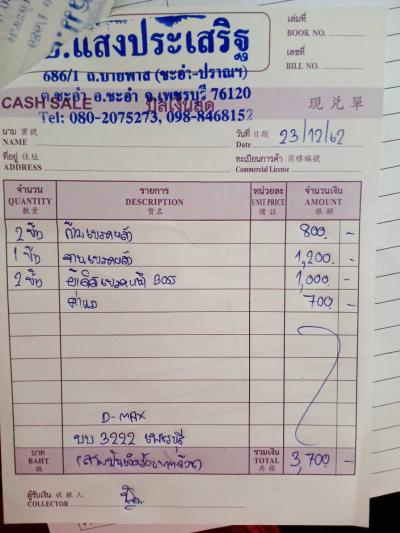 ช.แสงประเสริฐ
686/1 ถ.บายพาส (ชะอำ-ปราณฯ)
ต.ชะอำ อ.ชะอำ จ.เพชรบุรี 76120
Tel: 080-2075273, 098-8468152
เล่มที่
BOOK NO.
เลขที่
BILL NO.
CASH SALE บิลเงินสด 現兑單
นาม 寶號
NAME
วันที่ 日期
Date 23/12/62
ที่อยู่ 住址
ADDRESS
ทะเบียนการค้า 商標編號
Commercial License
จำนวน รายการ หน่วยละ จำนวนเงิน
QUANTITY DESCRIPTION UNIT PRICE AMOUNT
数量 货名 備註 銀額
2 ชิ้น 800. -
1 ชิ้น จานเบรคหลัง 1,200. -
2 ชิ้น เบรคหน้า BOSS 1,000. -
ค่าแรง 700. -
D-MAX
บบ 3222 เพชรบุรี
บาท รวมเงิน
BAHT (สามพันเจ็ดร้อยบาทถ้วน) TOTAL 3,700. -
銖 共銀
ผู้รับเงิน 收銀人
COLLECTOR